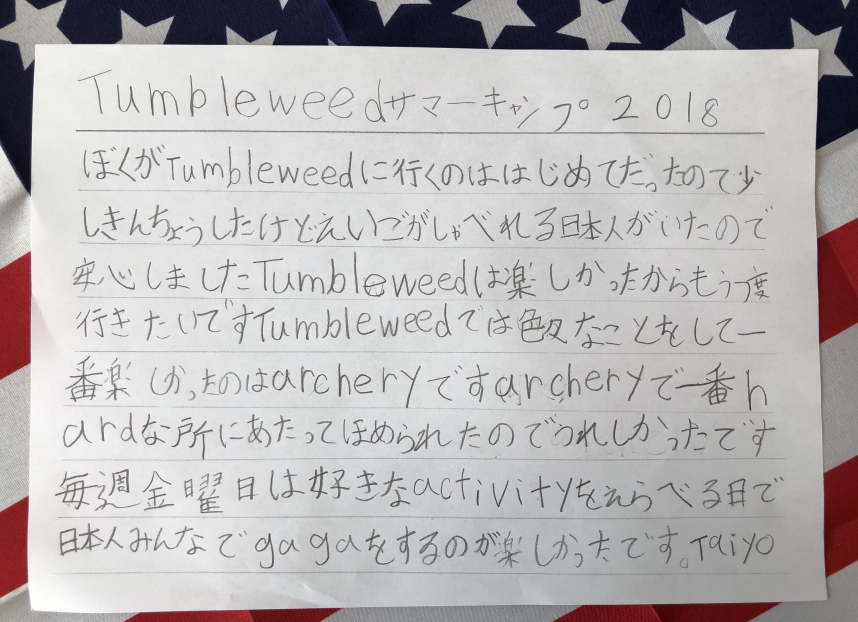 Tumbleweedサマーキャンプ 2018
ぼくがTumbleweedに行くのははじめてだったので少
しきんちょうしたけどえいごがしゃべれる日本人がいたので
安心しましたTumbleweedは楽しかったからもう一度
行きたいですTumbleweedでは色々なことをして一
番楽しかったのはarcheryですarcheryで一番h
ardな所にあたってほめられたのでうれしかったです
毎週金曜日は好きなactivityをえらべる日で
日本人みんなでgagaをするのが楽しかったです。Taiyo